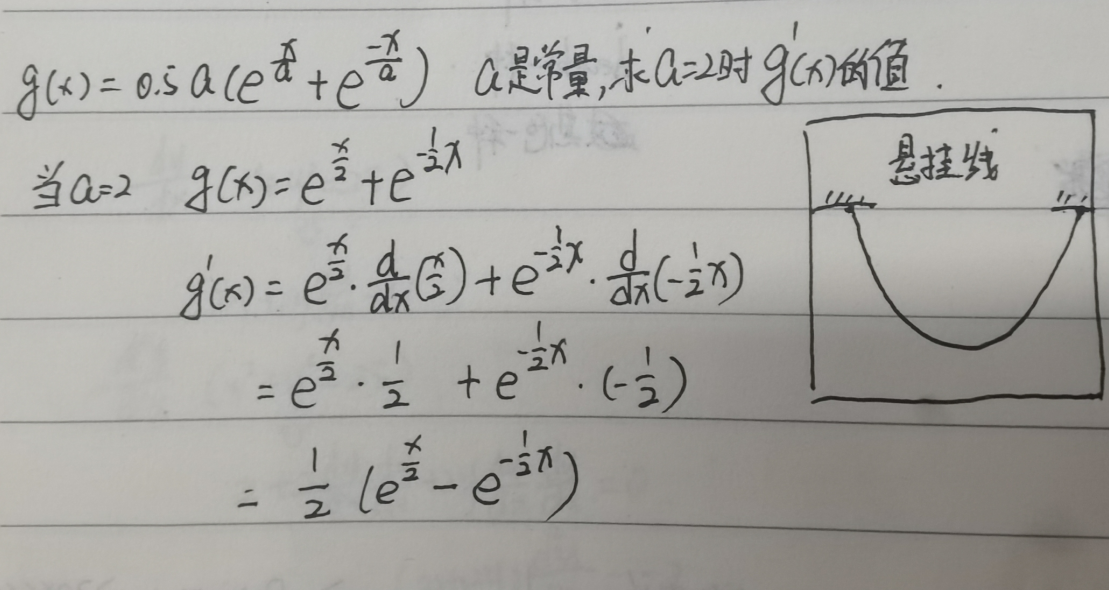 g(x) = 0.5 a (e^{x/a} + e^{-x/a}) a是常量,求a=2时 g'(x)的值.
悬挂线
当a=2 g(x) = e^{x/2} + e^{-1/2 x}
g'(x) = e^{x/2} · d/dx (x/2) + e^{-1/2 x} · d/dx (-1/2 x)
= e^{x/2} · 1/2 + e^{-1/2 x} · (-1/2)
= 1/2 (e^{x/2} - e^{-1/2 x})